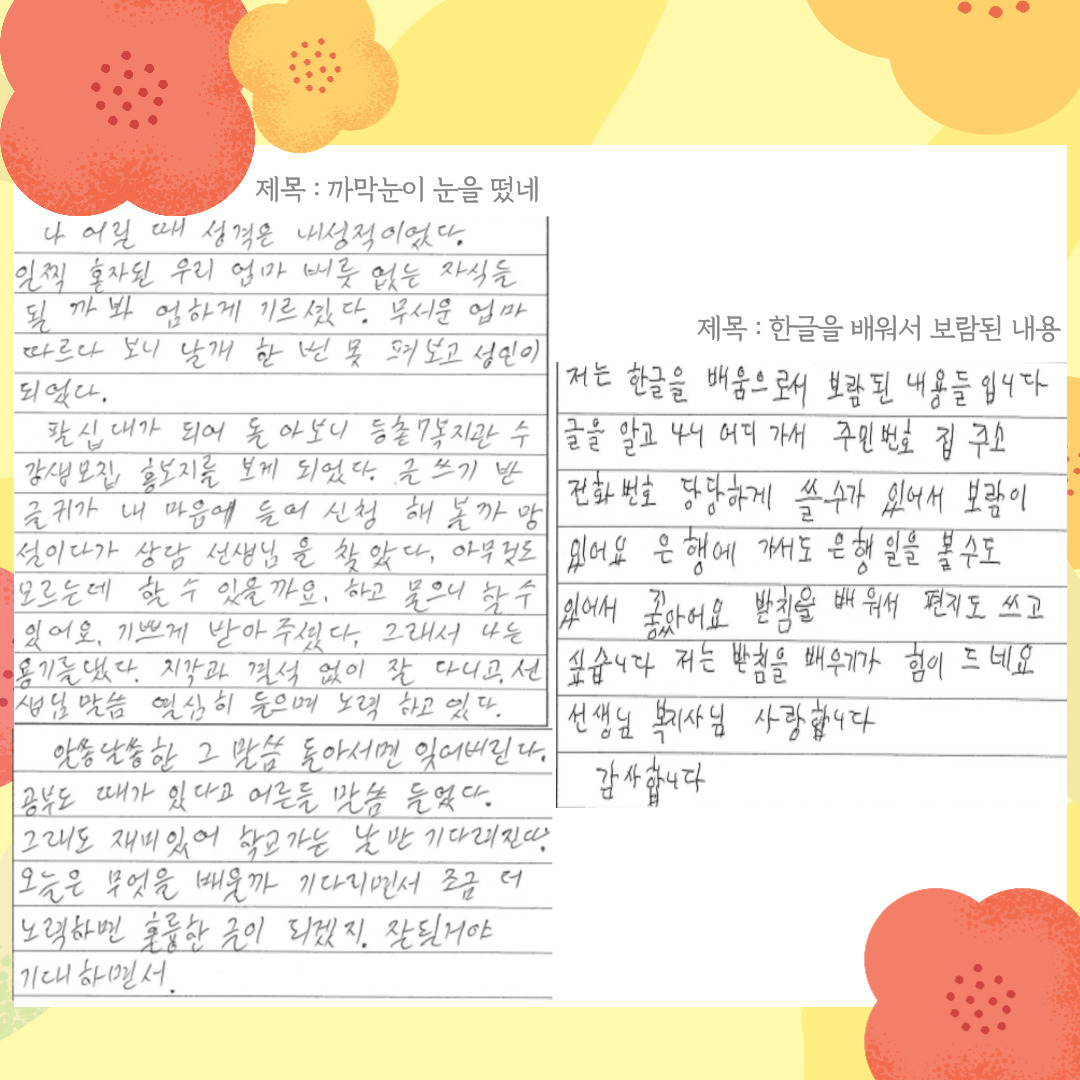 제목 : 까막눈이 눈을 떴네
나 어릴 때 성격은 내성적이었다.
일찍 혼자된 우리 엄마 버릇 없는 자식들
될 까 봐 엄하게 기르셨다. 무서운 엄마
따르다 보니 날개 한 번 못 펴보고 성인이
되었다.
팔십대가 되어 돌아보니 등촌7복지관 수
강생모집 홍보지를 보게 되었다. 글 쓰기 반
글귀가 내 마음에 들어 신청 해 볼까 망
설이다가 상담 선생님을 찾았다, 아무것도
모르는데 할 수 있을까요, 하고 물으니 할 수
있어요, 기쁘게 받아 주셨다, 그래서 나는
용기를 냈다. 지각과 결석 없이 잘 다니고, 선
생님 말씀 열심히 들으며 노력 하고 있다.
알쏭달쏭한 그 말씀 돌아서면 잊어버린다.
공부도 때가 있다고 어른들 말씀 들었다.
그래도 재미있어 학교가는 날만 기다려진다.
오늘은 무엇을 배울까 기다리면서 조금 더
노력하면 훌륭한 글이 되겠지. 잘될거야
기대하면서.
제목 : 한글을 배워서 보람된 내용
저는 한글을 배움으로서 보람된 내용들입니다
글을 알고 나니 어디 가서 주민번호 집 주소
전화번호 당당하게 쓸 수가 있어서 보람이
있어요 은행에 가서도 은행일을 볼수도
있어서 좋았어요 받침을 배워서 편지도 쓰고
싶습니다 저는 받침을 배우기가 힘이 드네요
선생님 복지사님 사랑합니다
감사합니다